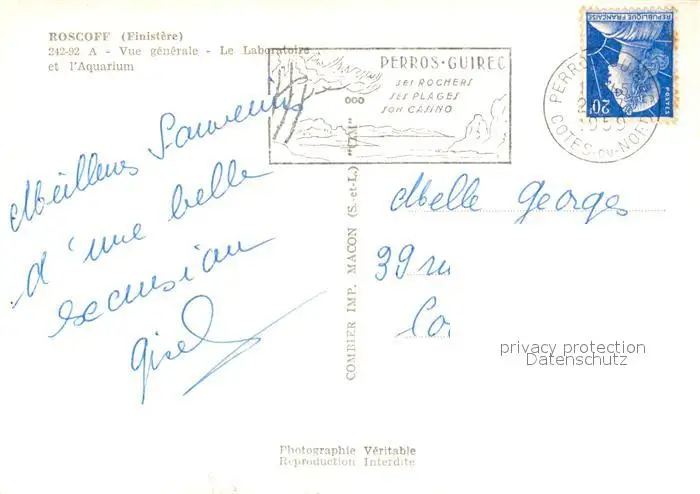 ROSCOFF (Finistère)
242-92 A - Vue générale - Le Laboratoire
et l'Aquarium
PERROS-GUIREC
SES ROCHERS
SES PLAGES
SON CASINO
PERROS-GUIREC
1959
COTES-DU-NORD
REPUBLIQUE FRANÇAISE
20F
POSTES
Meilleurs Souvenirs
d'une belle
excursion
COMBIER IMP. MACON (S.-et-L.) "CIM"
Melle Georges
39 ru
Co
privacy protection
Datenschutz
Photographie Véritable
Reproduction Interdite